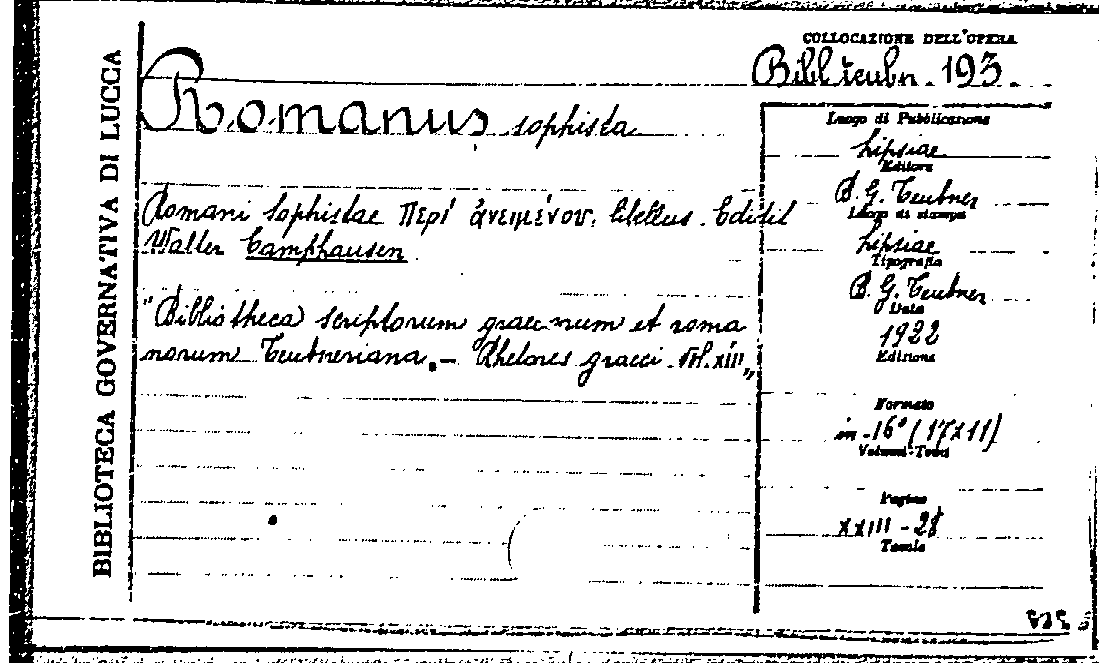 BIBLIOTECA GOVERNATIVA DI LUCCA
COLLOCAZIONE DELL'OPERA
Bibl. teubn. 193.
Romanus sophista
Romani Sophistae Περί ἀνειμένου. libellus. Edidit
Walter Camphausen
"Bibliotheca scriptorum graecorum et roma
norum Teubneriana. - Rhetores graeci. Vol. XIII„
Luogo di Pubblicazione
Lipsiae
Editore
B. G. Teubner
Luogo di stampa
Lipsiae
Tipografia
B. G. Teubner
Data
1922
Edizione
Formato
in-16° (17x11)
Volumi-Tomi
Pagine
XXIII - 28
Tavole